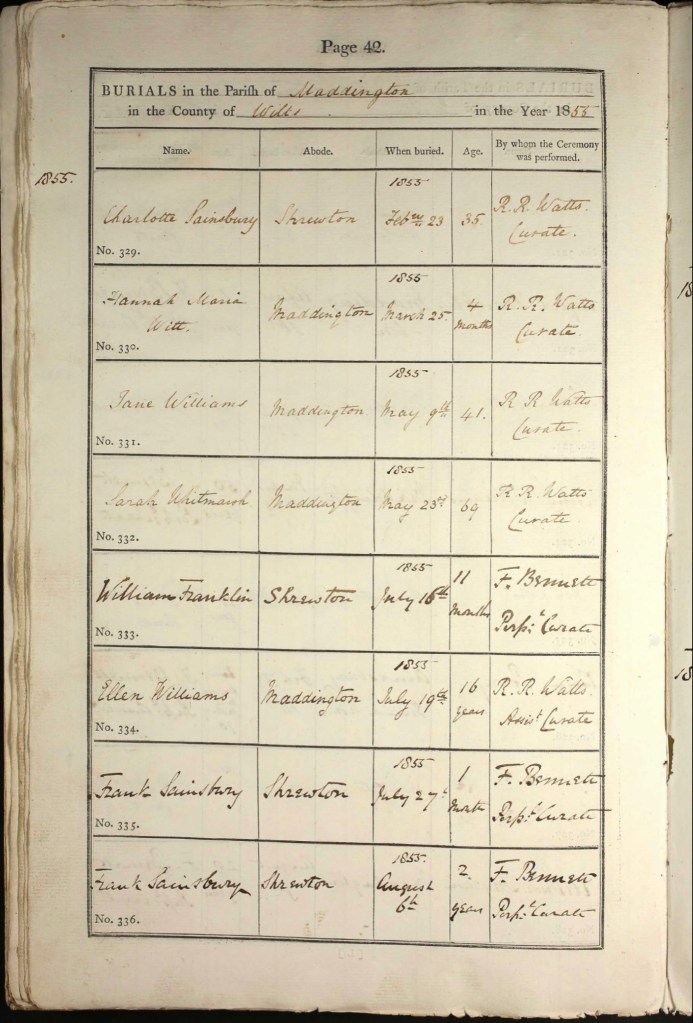 Page 42.
BURIALS in the Parish of Maddington
in the County of Wilts. in the Year 1855
Name. Abode. When buried. Age. By whom the Ceremony was performed.
1855.
1855
Charlotte Sainsbury Shrewton Feb ry 23 35 R. R. Watts.
Curate.
No. 329.
1855
Hannah Maria Maddington March 25 4 R. R. Watts
Witt. months Curate
No. 330.
1855
Jane Williams Maddington May 9th 41. R R. Watts
Curate.
No. 331.
1855
Sarah Whitmarsh Maddington May 23rd 69 R R. Watts
Curate
No. 332.
1855 11
William Franklin Shrewton July 16th months F. Bennett
Perp. Curate
No. 333.
1855
Ellen Williams Maddington July 19th 16 R. R. Watts.
years Assist Curate
No. 334.
1855 1
Frank Sainsbury Shrewton July 27 month F. Bennett
Perp. Curate
No. 335.
1855.
Frank Sainsbury Shrewton August 2. F. Bennett
6th years Perp. Curate
No. 336.
18
18